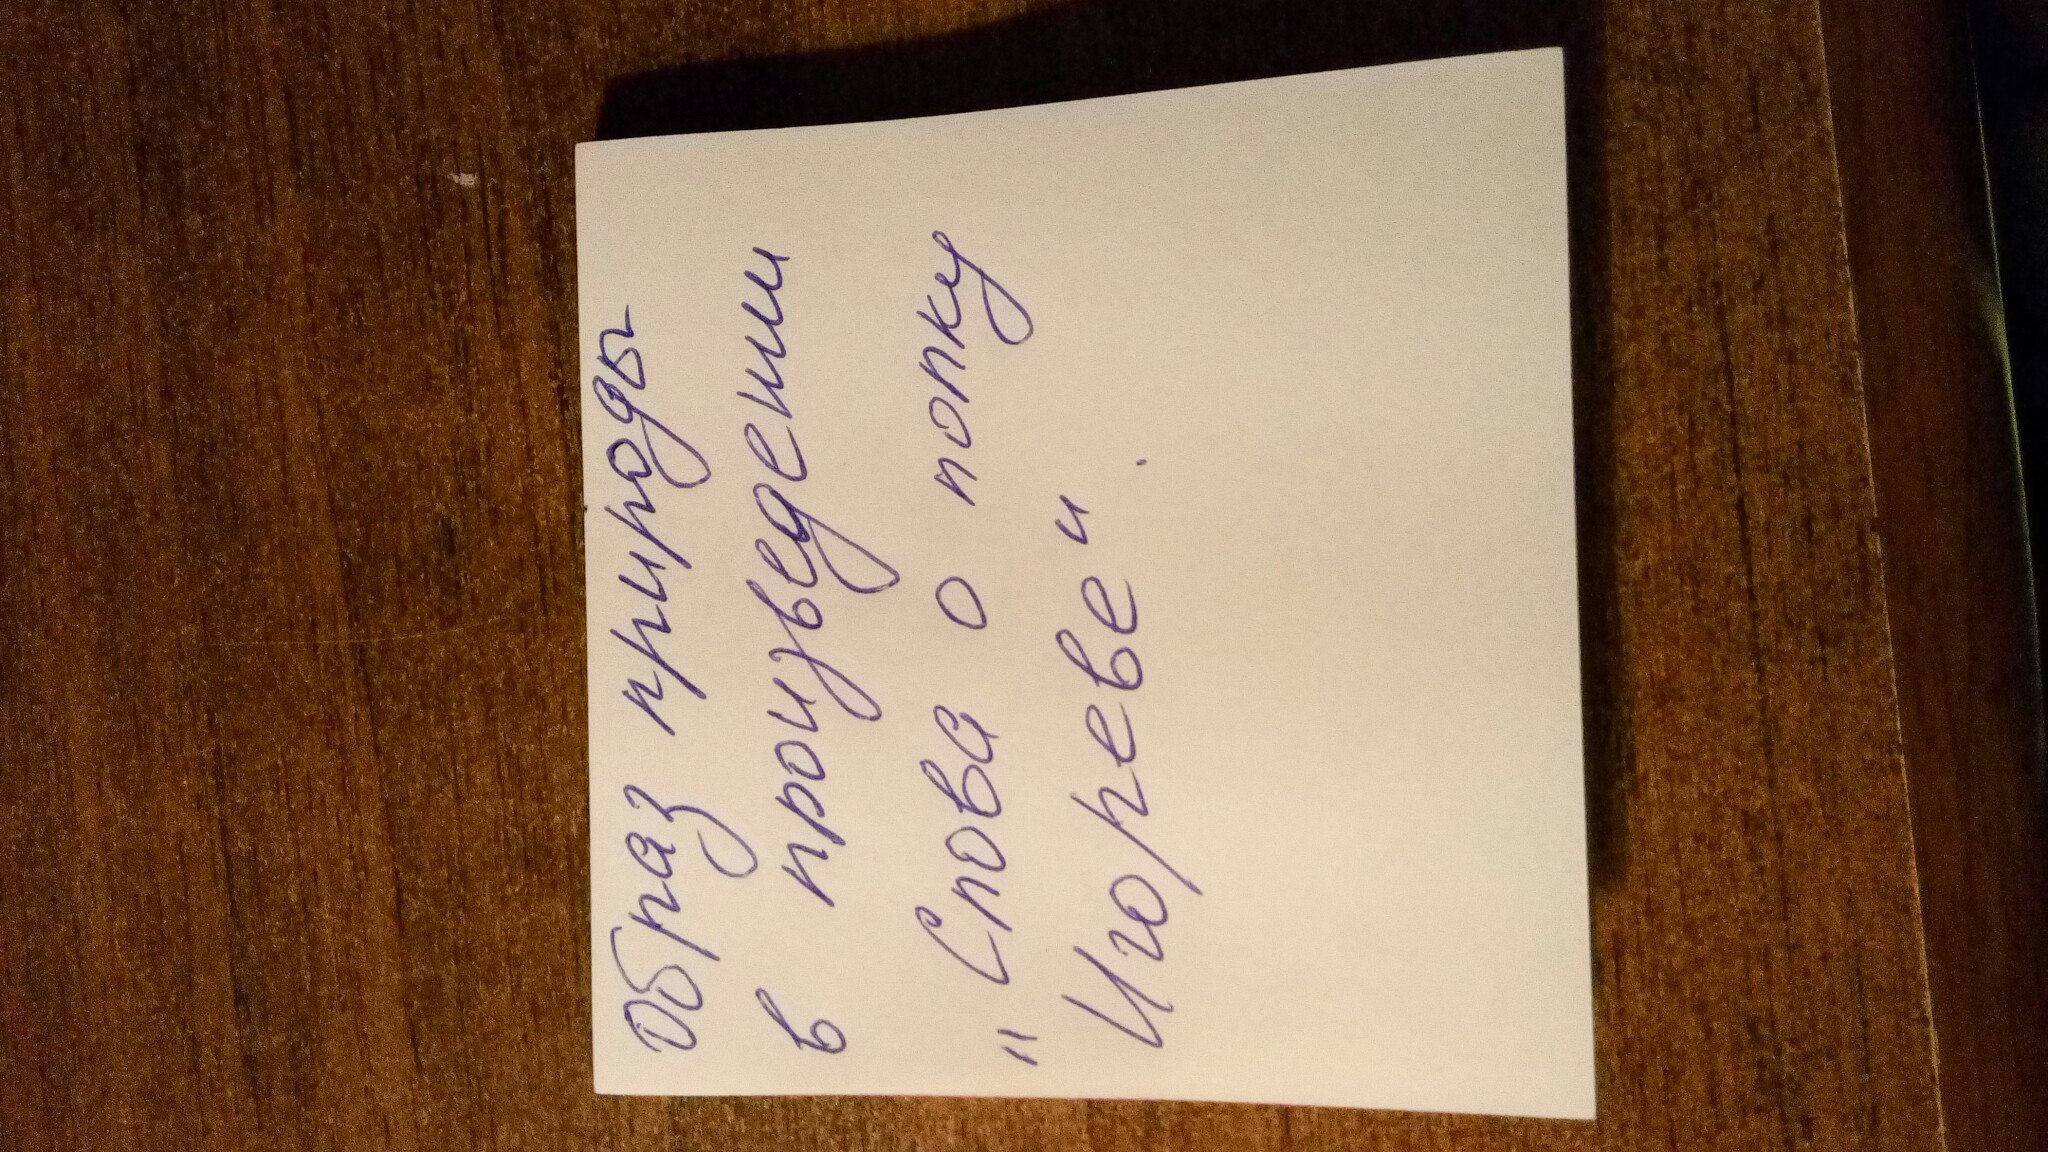 Образ природы
в произведении
"Слова о полку
Игореве".